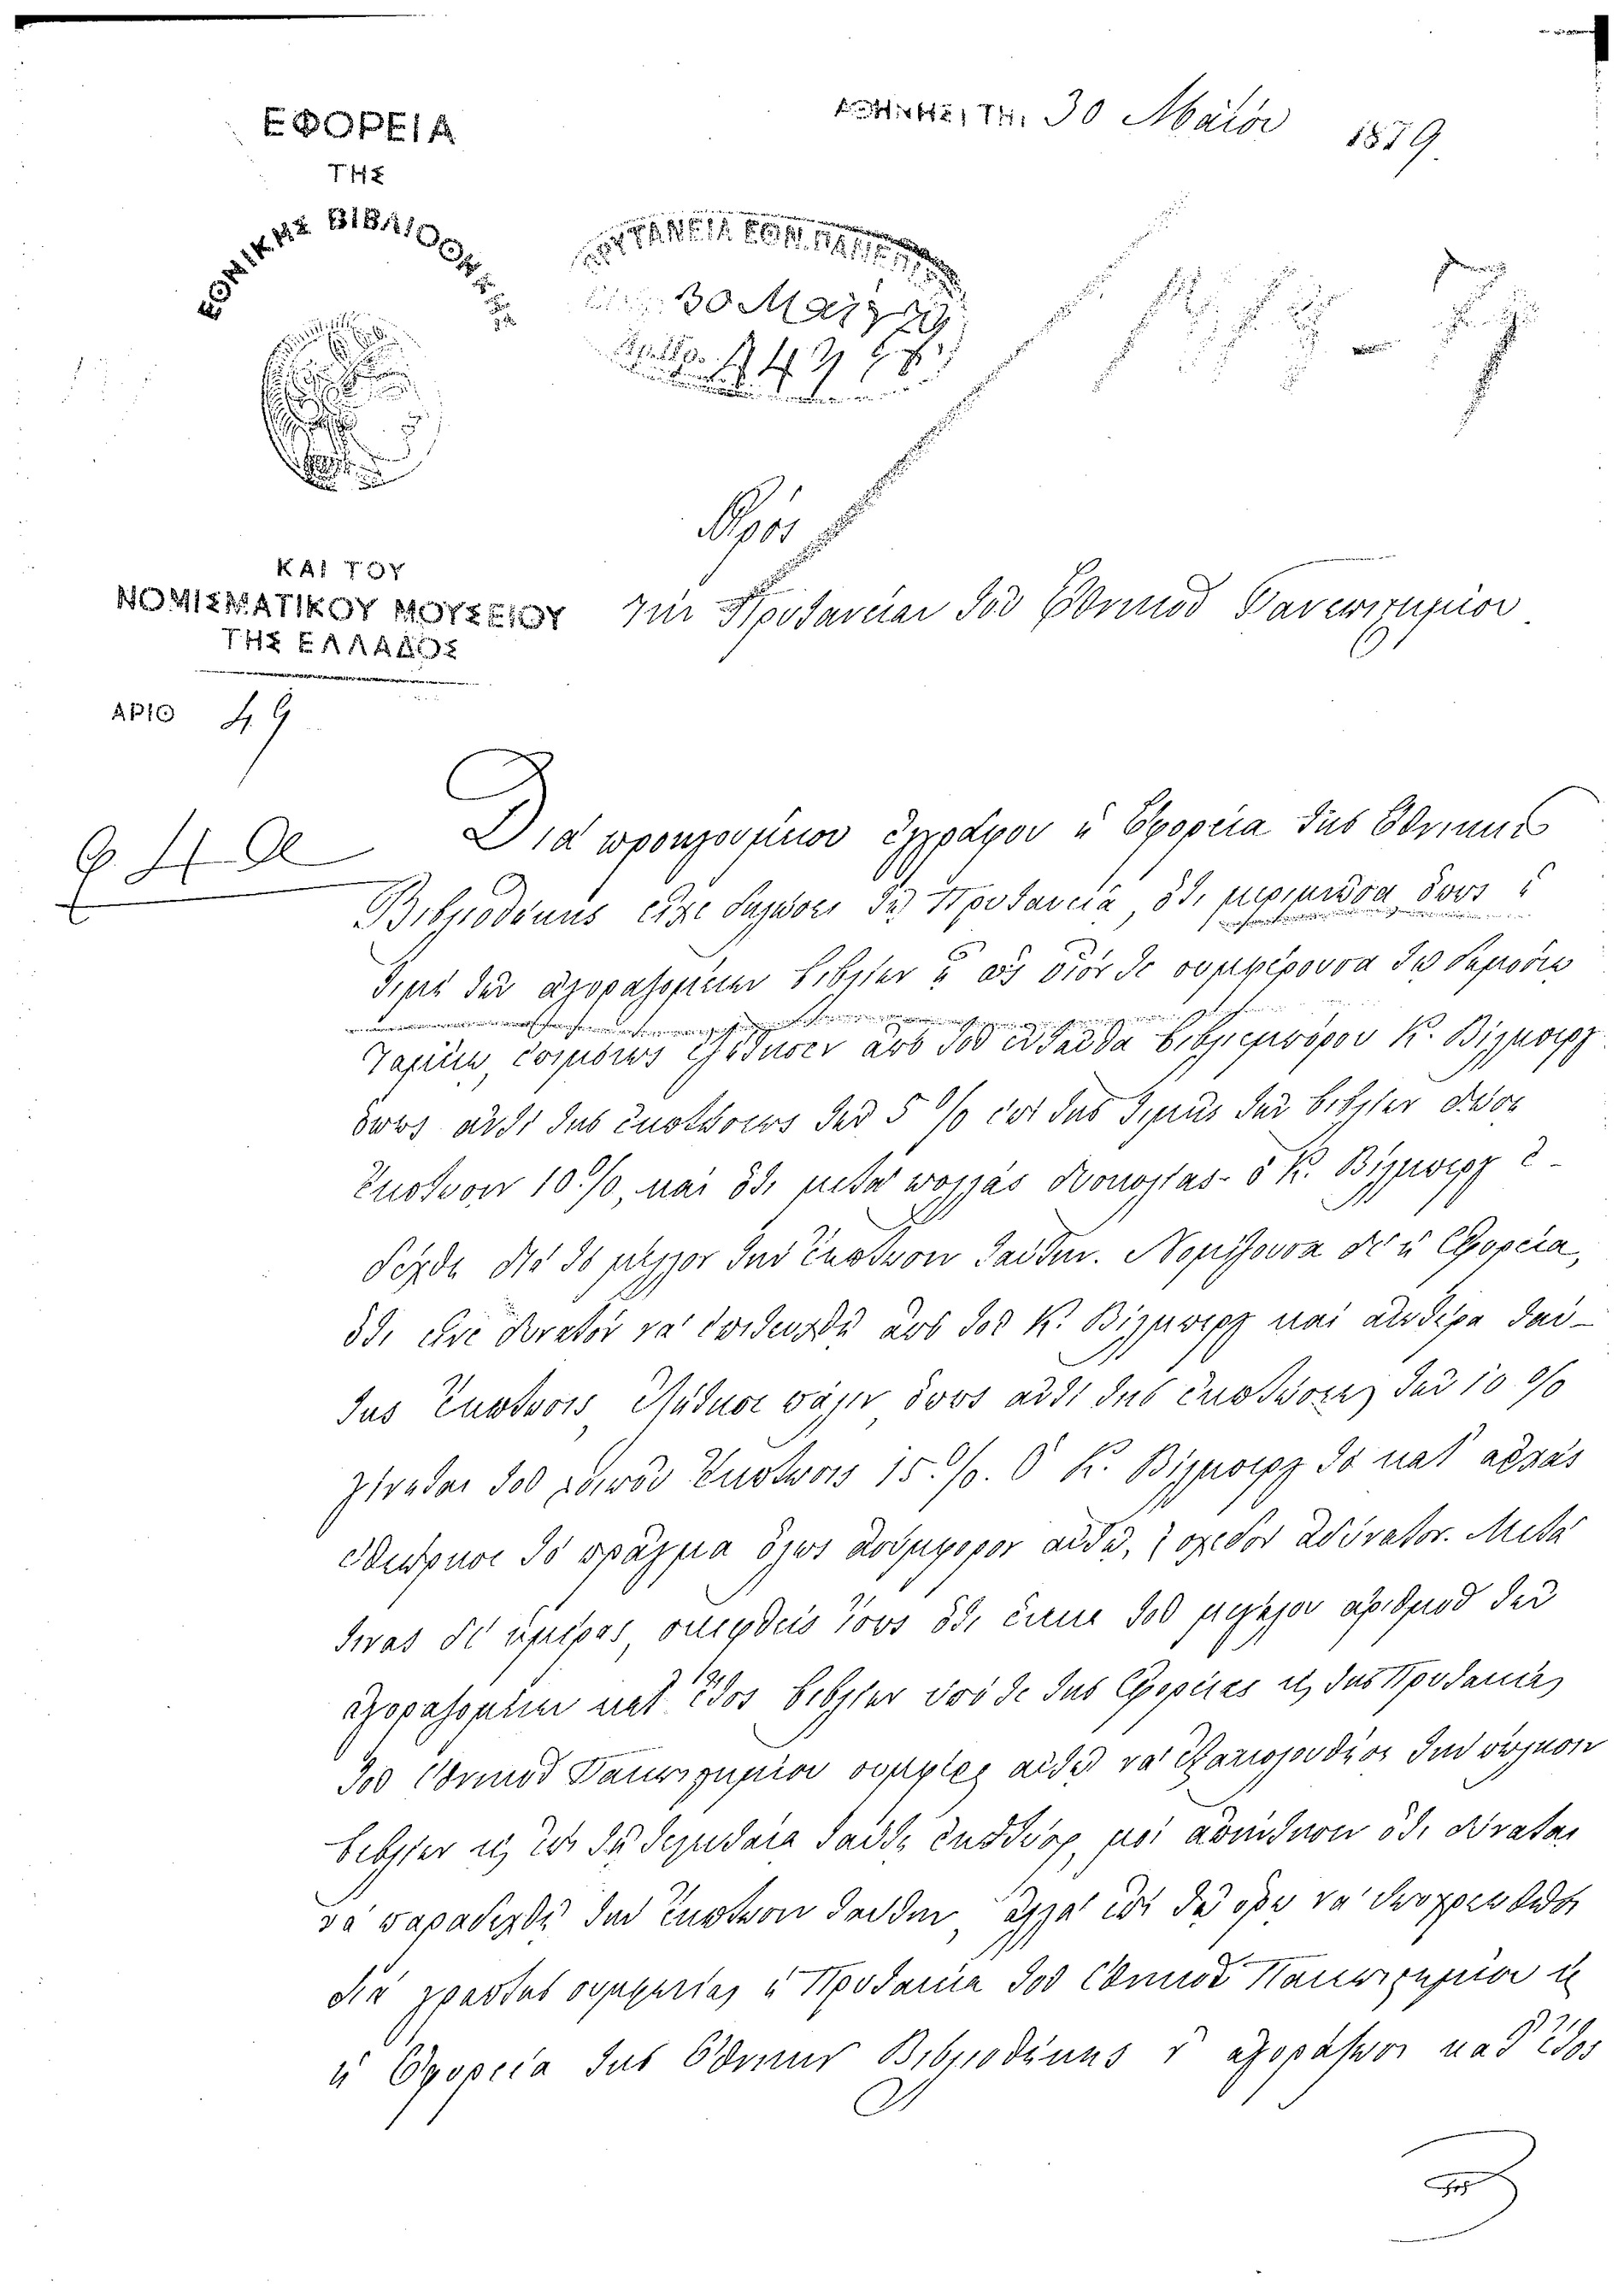 ΕΦΟΡΕΙΑ
ΤΗΣ
ΕΘΝΙΚΗΣ ΒΙΒΛΙΟΘΗΚΗΣ
ΚΑΙ ΤΟΥ
ΝΟΜΙΣΜΑΤΙΚΟΥ ΜΟΥΣΕΙΟΥ
ΤΗΣ ΕΛΛΑΔΟΣ
ΑΡΙΘ 49
ΑΘΗΝΗΣΙ, ΤΗι 30 Μαΐου 1879
ΠΡΥΤΑΝΕΙΑ ΕΘΝ. ΠΑΝΕΠΙΣ
30 Μαΐου 79
Πρὸς
τὴν Πρυτανείαν τοῦ Ἐθνικοῦ Πανεπιστημίου
Διὰ προηγουμένου ἐγγράφου ἡ Ἐφορεία τῆς Ἐθνικῆς
Βιβλιοθήκης εἶχε δηλώσει τῇ Πρυτανείᾳ, ὅτι μεριμνῶσα ὅπως ἡ
τιμὴ τῶν ἀγοραζομένων βιβλίων ᾖ ὡς οἷόν τε συμφέρουσα τῷ δημοσίῳ
Ταμείῳ, ἐζήτησεν ἀπὸ τοῦ ἐνταῦθα βιβλιεμπόρου Κ. Βίλμπεργ
ὅπως ἀντὶ τῆς ἐκπτώσεως τῶν 5 % ἐπὶ τῆς τιμῆς τῶν βιβλίων
ἔκπτωσιν 10 %, καὶ ὅτι μετὰ πολλὰς δυσκολίας ὁ Κ. Βίλμπεργ ἐ-
δέχθη διὰ τὸ μέλλον τὴν ἔκπτωσιν ταύτην. Νομίζουσα δὲ ἡ Ἐφορεία,
ὅτι εἶνε δυνατὸν νὰ ἐπιτευχθῇ ἀπὸ τοῦ Κ. Βίλμπεργ καὶ ἀνωτέρα ταύ-
της ἔκπτωσις, ἐζήτησε πάλιν ὅπως ἀντὶ τῆς ἐκπτώσεως τῶν 10 %
γίνεται τοῦ λοιποῦ ἔκπτωσις 15 %. Ὁ Κ. Βίλμπεργ τὸ κατ' ἀρχὰς
ἐθεώρησε τὸ πρᾶγμα ὅλως ἀσύμφορον αὐτῷ, ἢ σχεδὸν ἀδύνατον. Μετά
τινας δὲ ἡμέρας, σκεφθεὶς ἴσως ὅτι ἕνεκα τοῦ μεγάλου ἀριθμοῦ τῶν
ἀγοραζομένων κατ' ἔτος βιβλίων ὑπό τε τῆς Ἐφορείας καὶ τῆς Πρυτανείας
τοῦ Ἐθνικοῦ Πανεπιστημίου συμφέρει αὐτῷ νὰ ἐξακολουθήσῃ τὴν πώλησιν
βιβλίων καὶ ἐπὶ τῇ τελευταίᾳ ταύτῃ ἐκπτώσει, μοὶ ἀπήντησεν ὅτι δύναται
νὰ παραδεχθῇ τὴν ἔκπτωσιν ταύτην, ἀλλὰ ἐπὶ τῷ ὅρῳ νὰ ὑποχρεωθῶσι
διὰ γραπτῆς συμφωνίας ἡ Πρυτανεία τοῦ Ἐθνικοῦ Πανεπιστημίου καὶ
ἡ Ἐφορεία τῆς Ἐθνικῆς Βιβλιοθήκης ν' ἀγοράζωσι κατ' ἔτος